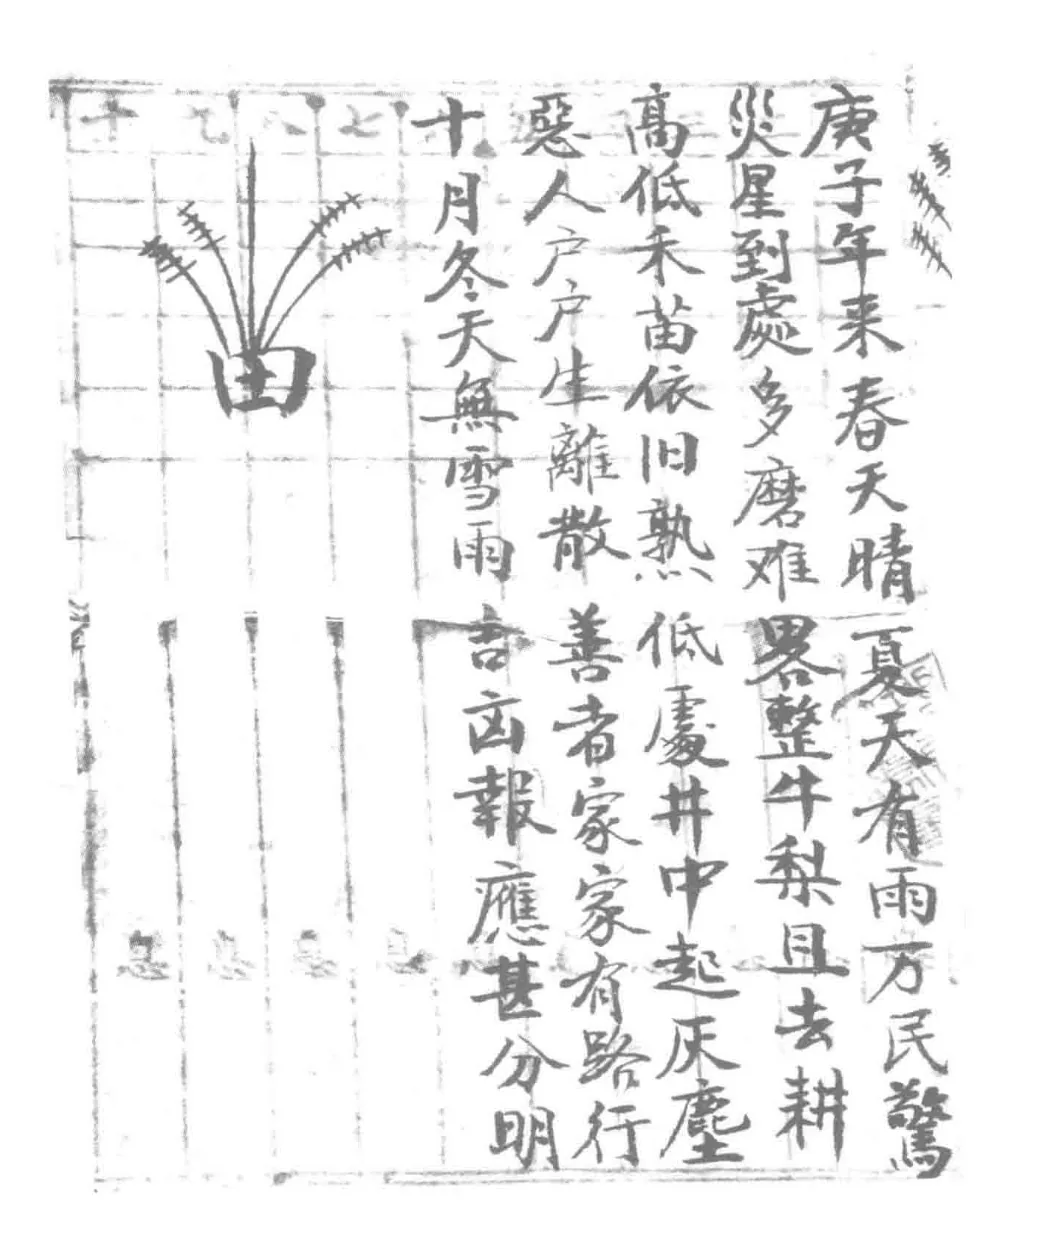 庚子年来春天晴夏天有雨万民驚
災星到處多磨难畧整牛梨且去耕
高低禾苗依旧熟低處井中起灰塵
惡人户户生離散善者家家有路行
十月冬天無雪雨吉凶報應甚分明
田
七
八
九
十